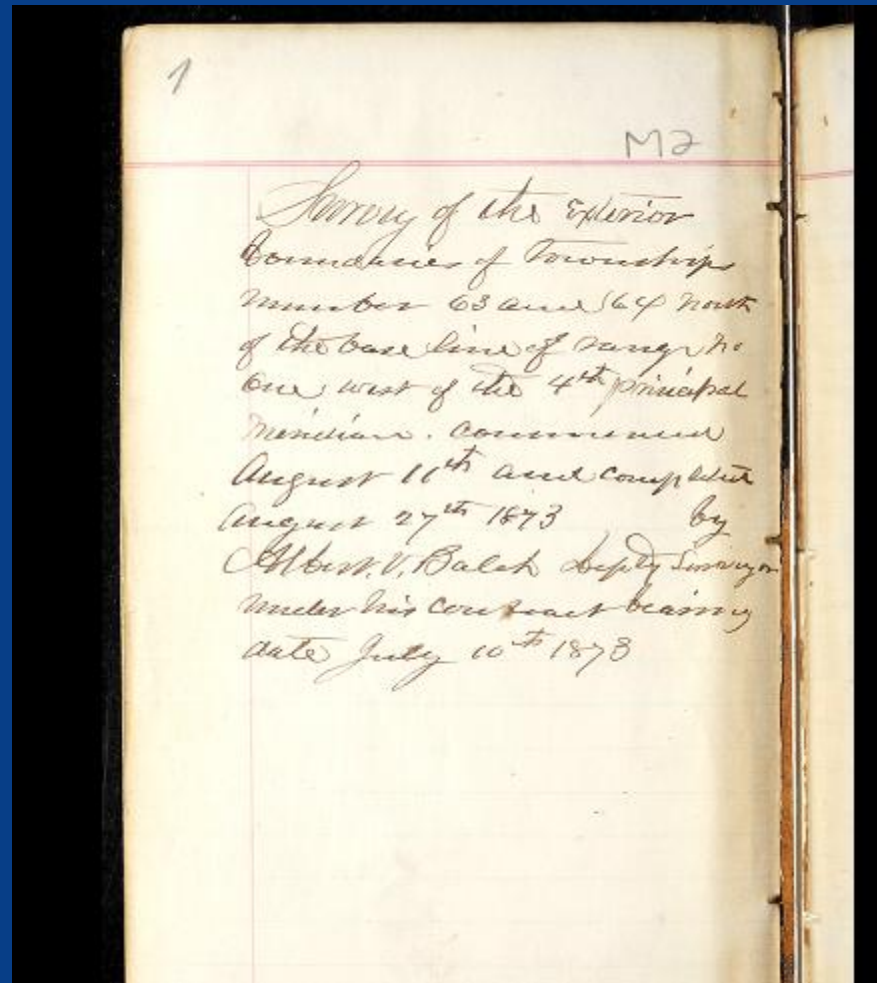 1
M2
Survey of the Exterior
boundaries of Townships
number 63 and 64 north
of the base line of range No
One west of the 4th principal
Meridian. commenced
August 11th and completed
August 27th 1873 by
Albert. V. Balch Depty Surveyor
under his contract bearing
date July 10th 1873